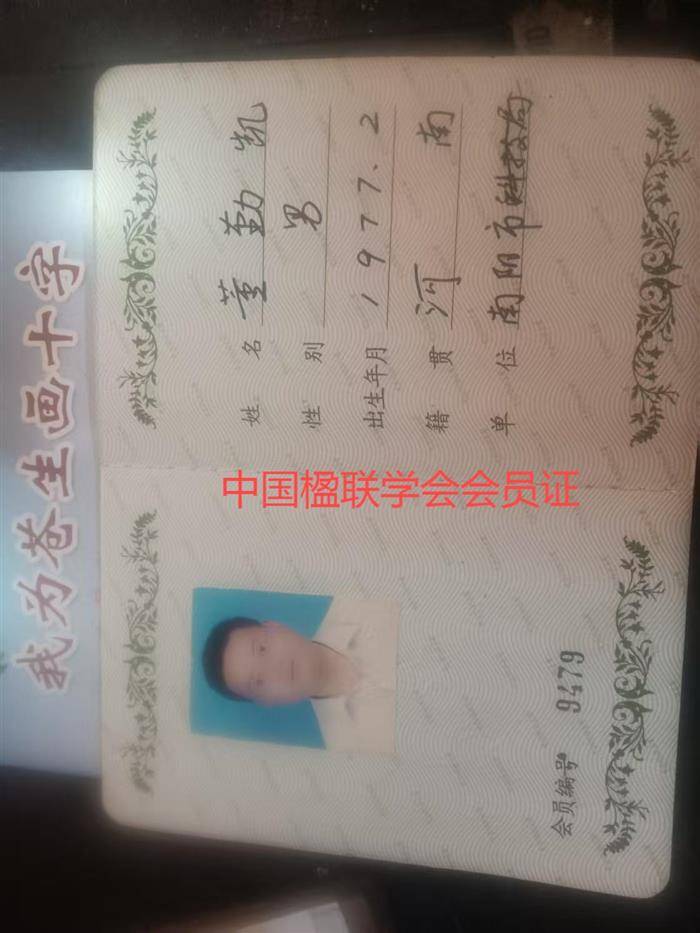 我为苍生画十字
姓名 董勤凯
性别 男
出生年月 1977.2
籍贯 河南
单位 南阳市科技局
中国楹联学会会员证
会员编号 9479